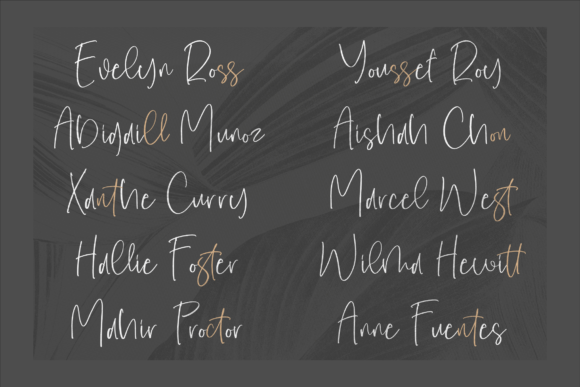 Evelyn Ross
Abigaill Munoz
Xanthe Curry
Hallie Foster
Mahir Proctor
Youssef Roy
Aishah Chon
Marcel West
Wilma Hewitt
Anne Fuentes